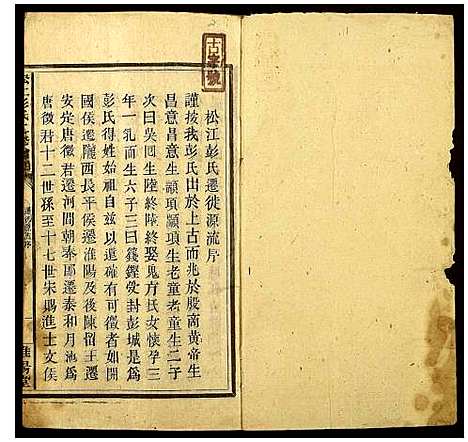 古字號
松江彭氏遷徙源流序
謹按我彭氏出於上古而兆於殷商黃帝生
昌意昌意生顓頊顓頊生老童老童生二子
次曰吳回生陸終陸終娶鬼方氏女懷孕三
年一乳而生六子三曰籛鏗受封彭城是為
彭氏得姓始祖自茲以還確有可徵者如開
國侯遷隴西長平侯遷淮陽及後陳留王遷
安定唐徵君遷河間朝泰郡遷泰和月池為
唐徵君十二世孫至十七世朱賜進士文侯